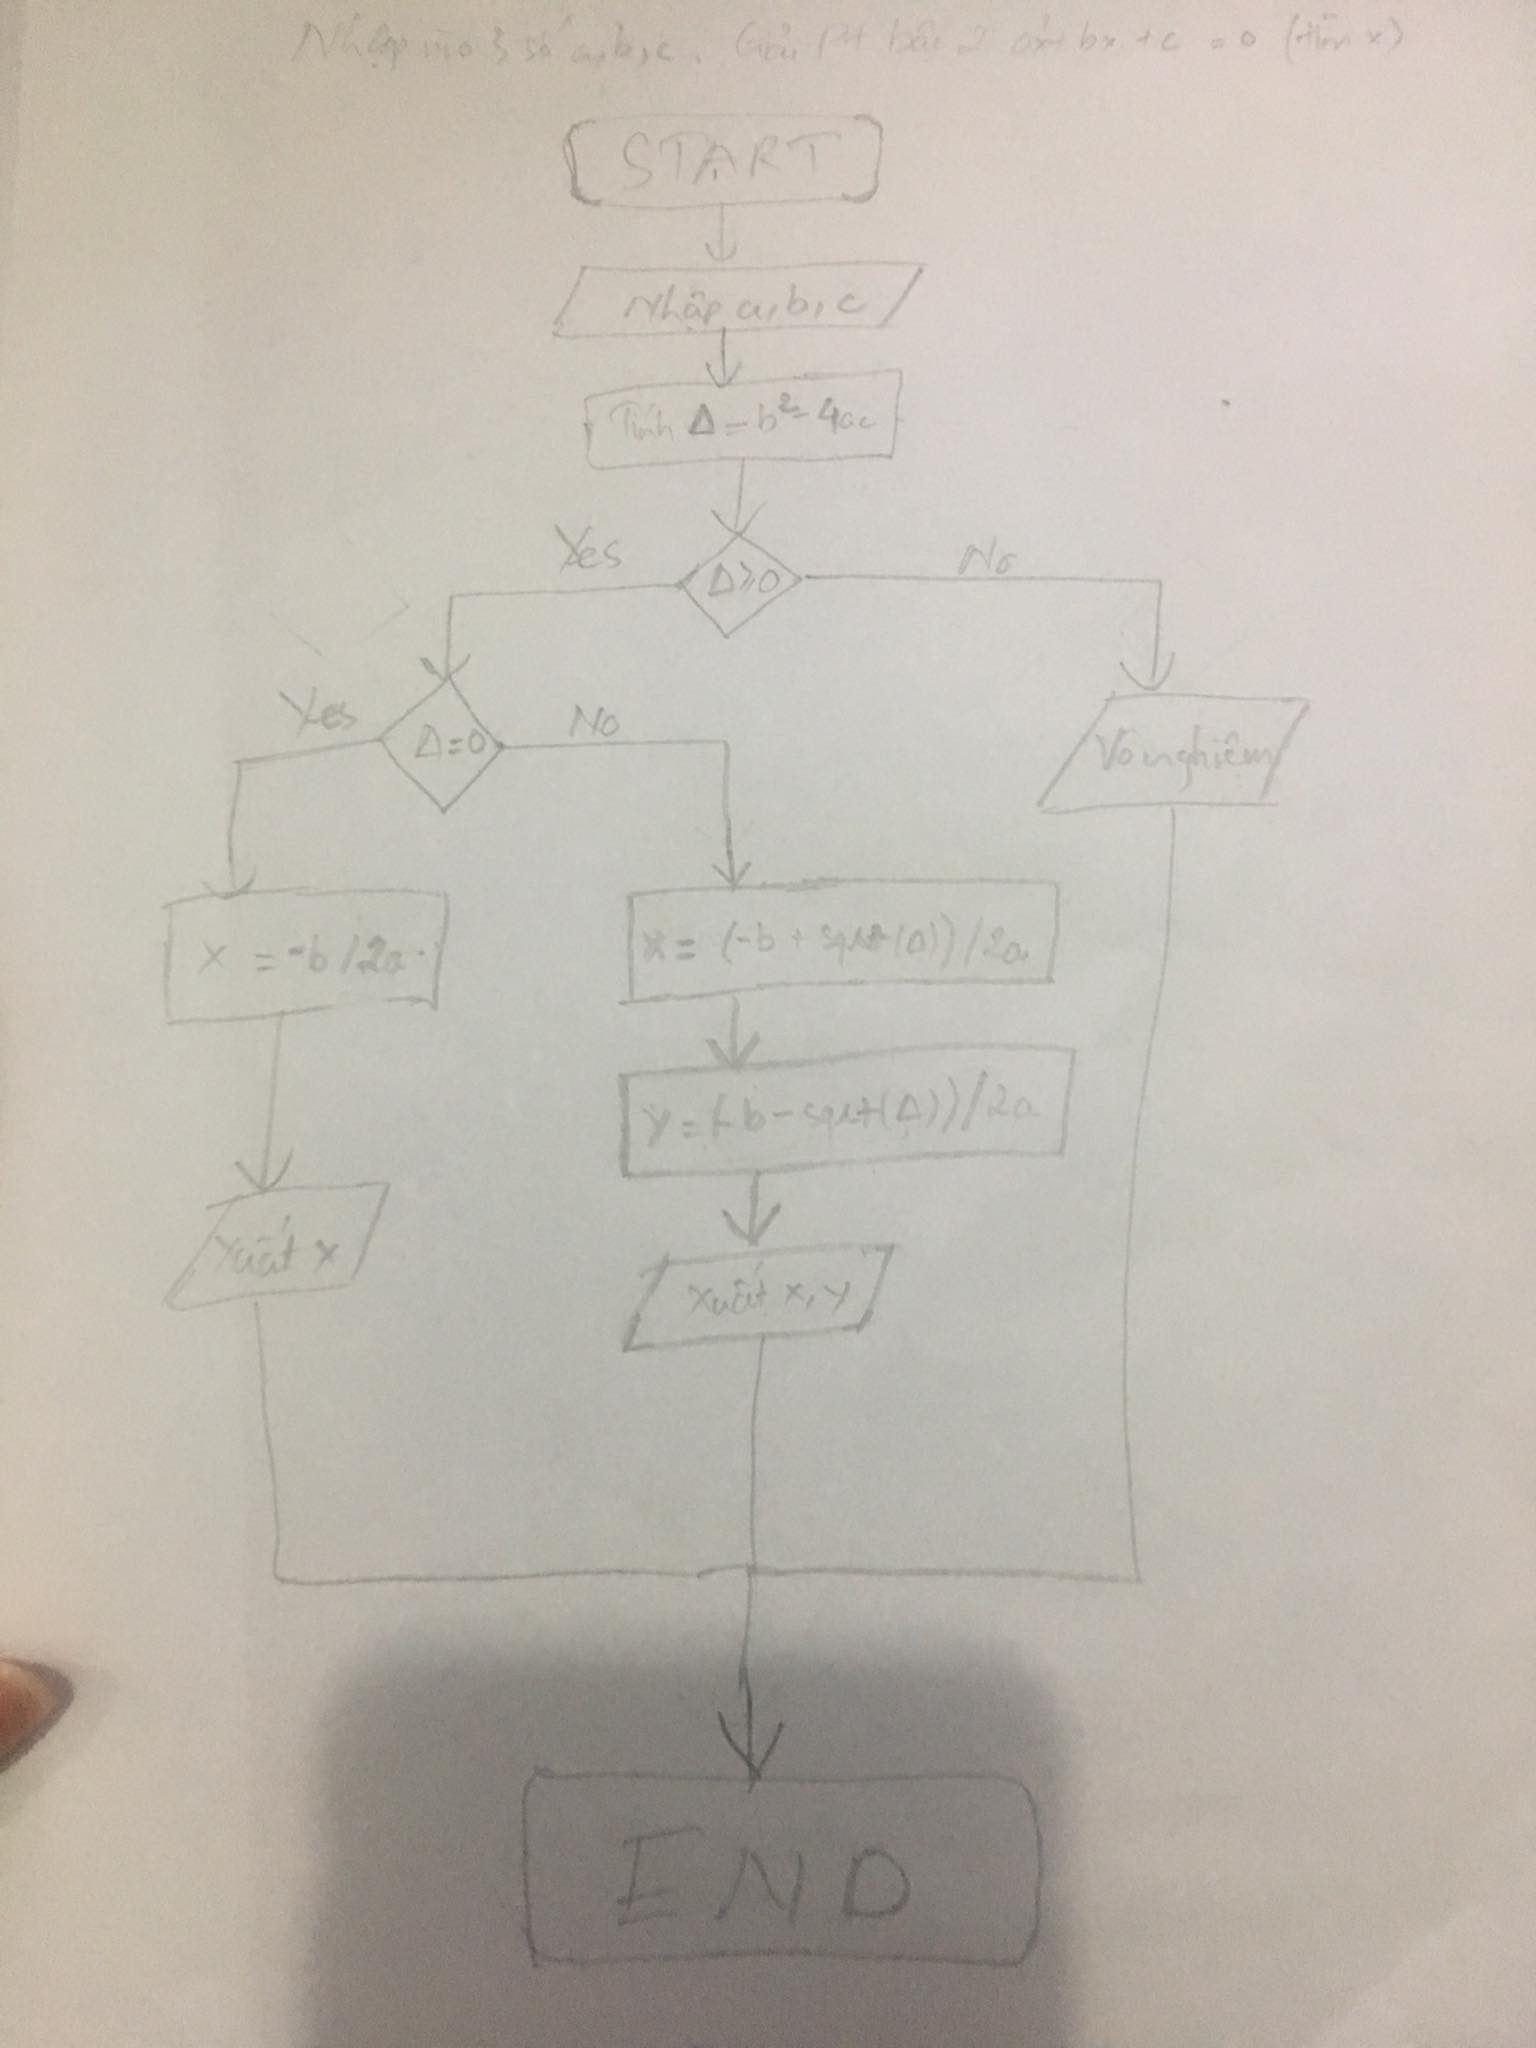 Nhập vào 3 số a,b,c. Giải PT bậc 2 ax²+bx+c=0 (tìm x)
START
Nhập a,b,c
Tính Δ=b²-4ac
Yes
Δ≥0
No
Yes
Δ=0
No
Vô nghiệm
x = -b/2a
x = (-b + sqrt(Δ))/2a
y = (-b - sqrt(Δ))/2a
Xuất x
Xuất x, y
END